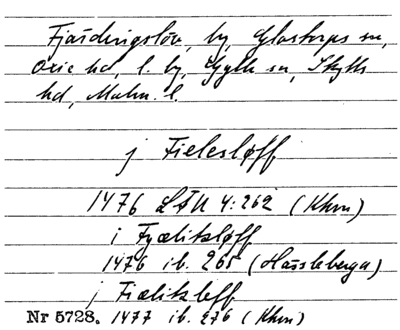 Fjärdingslöv, by, Glostorps sn,
Oxie hd, l. by, Gylle sn, Skytts
hd, Malm. l.
j Fielesløff
1476 LÅU 4:262 (Khvn)
i Fyælitzløff
1476 ib. 265 (Hassleberga)
j Fiælitzleff
Nr 5728. 1477 ib. 276 (Khvn)